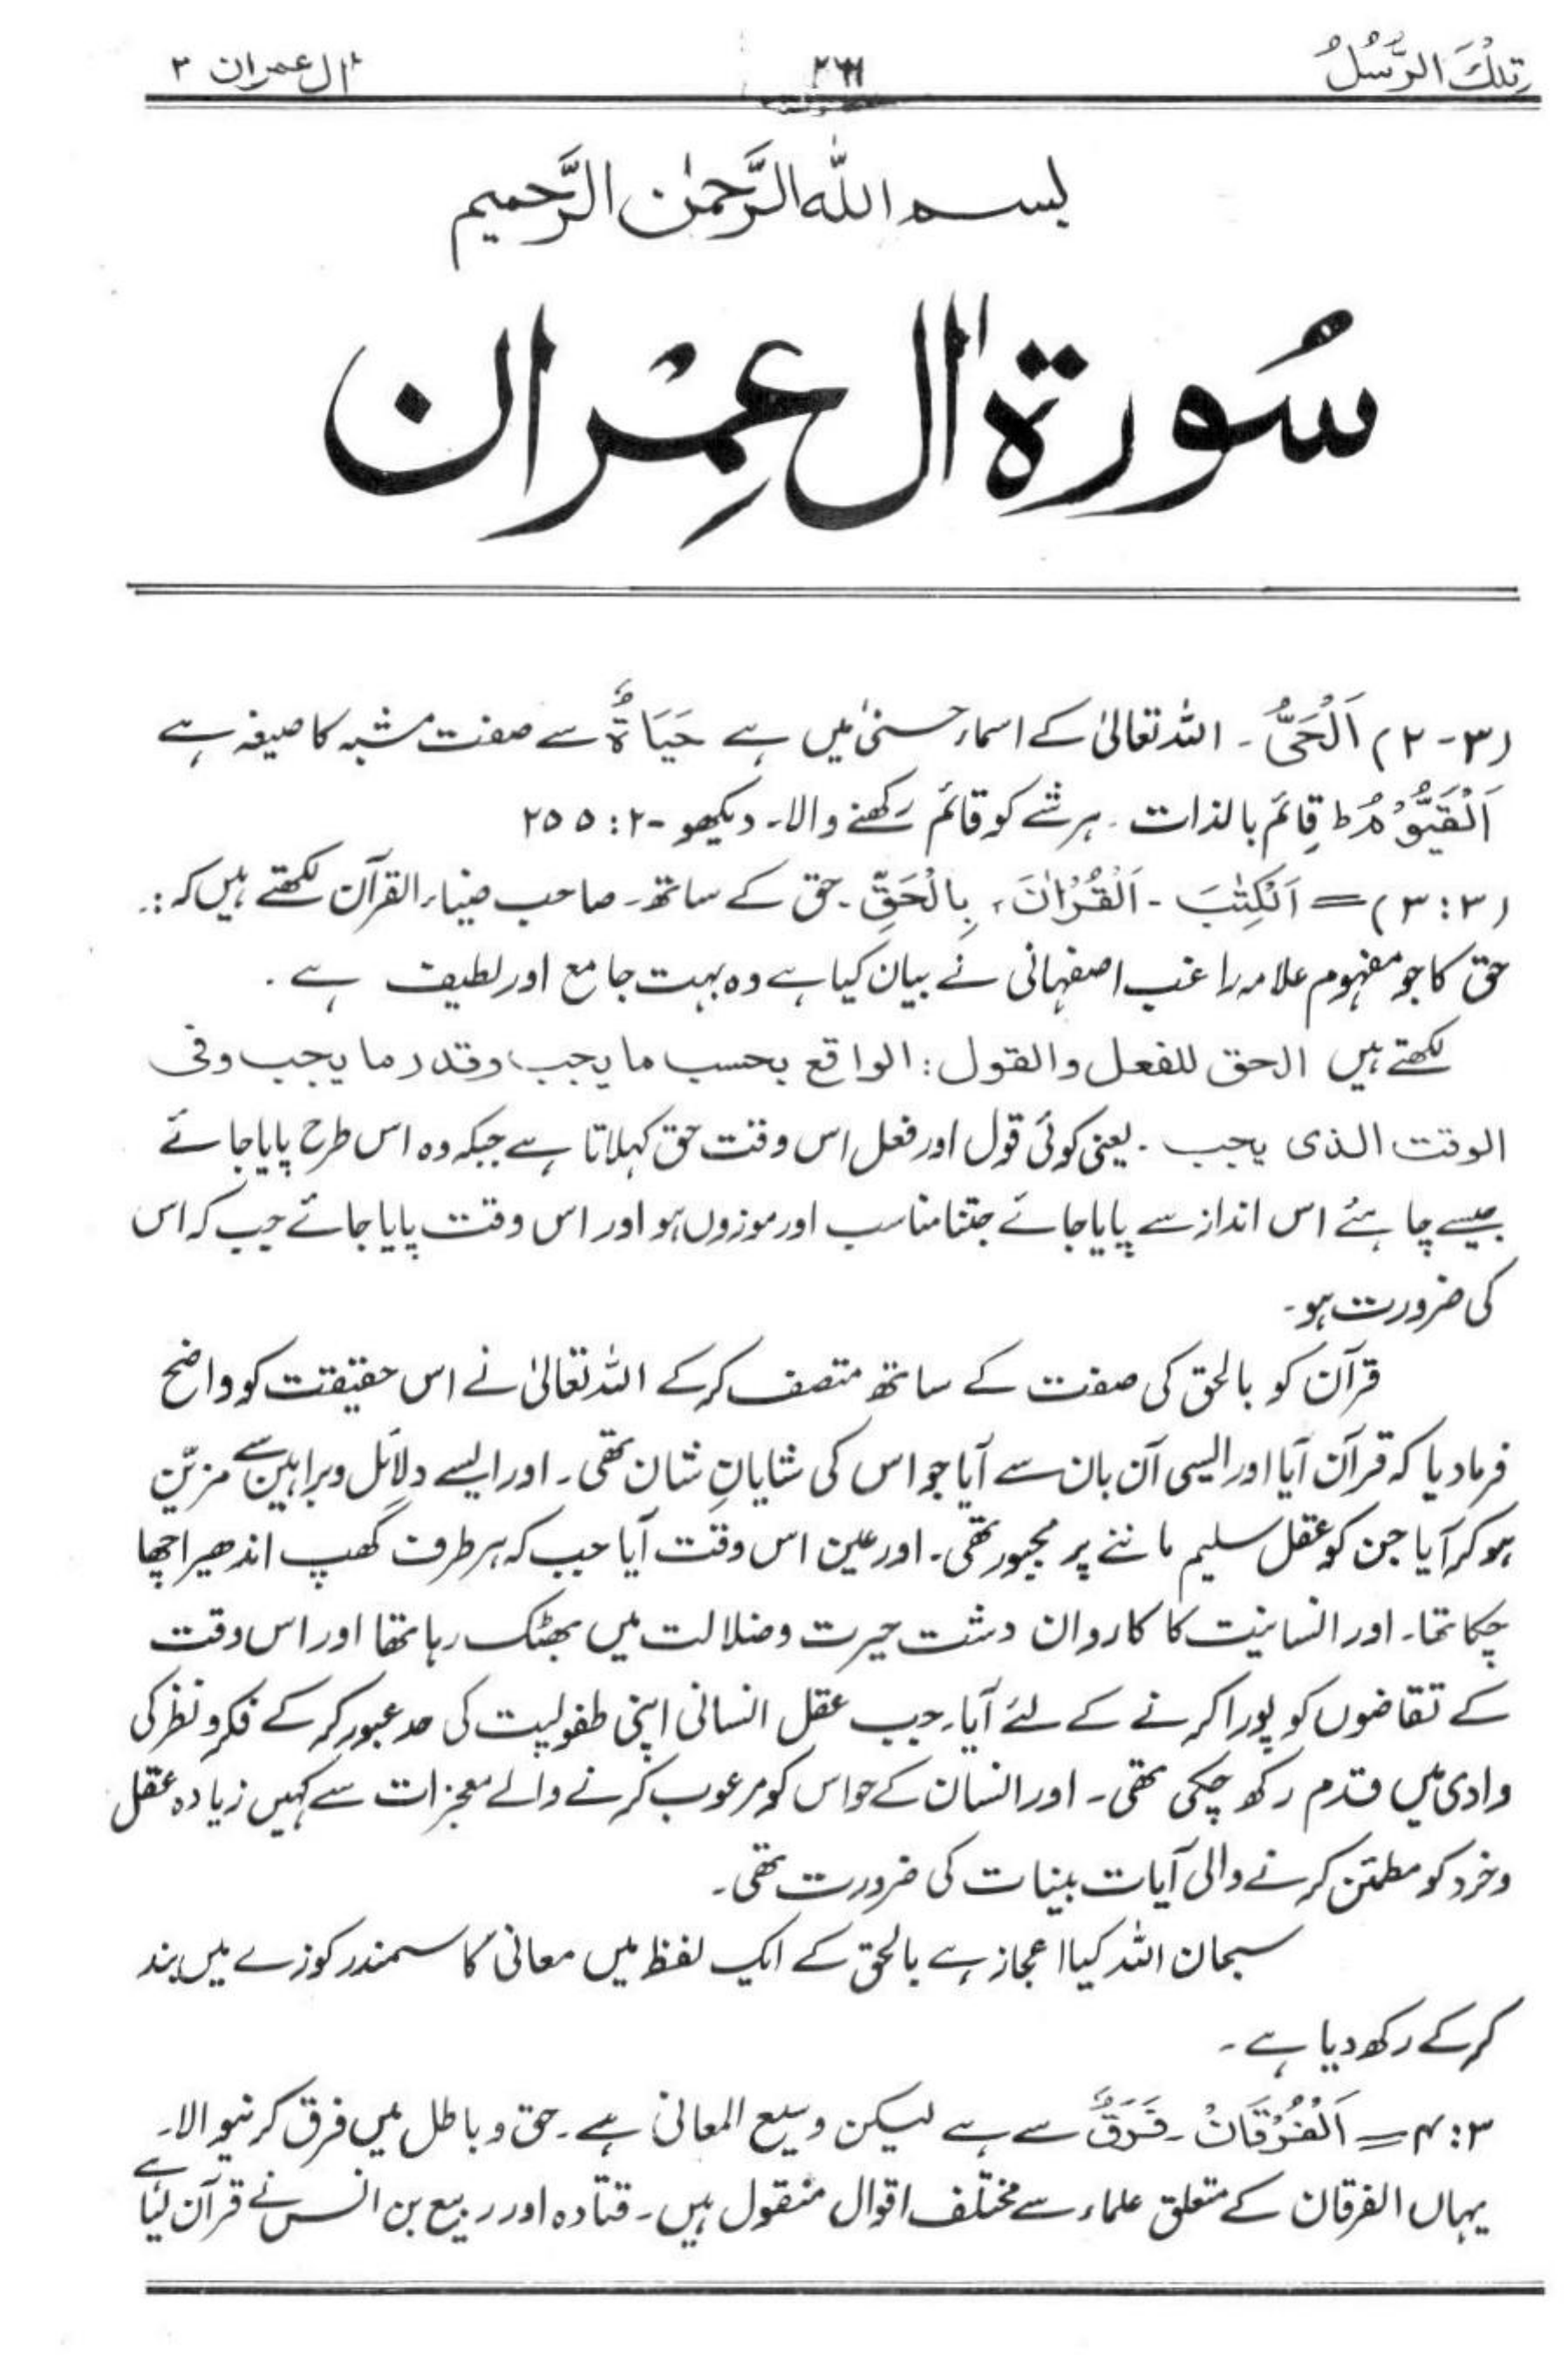 تِلْكَ الرُّسُلُ
اٰل عمران ۳
بسم اللہ الرَّحمٰن الرَّحیم
سُورۃ اٰل عِمْران
(۳-۲) اَلْحَیُّ۔ اللہ تعالیٰ کے اسماء حسنیٰ میں ہے حَیَاةٌ سے صفت مشبہ کا صیغہ ہے
اَلْقَیُّوْمُ ط قائم بالذات۔ ہر شے کو قائم رکھنے والا۔ دیکھو -۲:۲۵۵
(۳:۳) = اَلْكِتٰبَ - اَلْقُرْاٰنَ، بِالْحَقِّ۔ حق کے ساتھ۔ صاحب ضیاء القرآن لکھتے ہیں کہ:۔
حق کا جو مفہوم علامہ راغب اصفہانی نے بیان کیا ہے وہ بہت جامع اور لطیف ہے۔
لکھتے ہیں الحق للفعل والقول: الواقع بحسب ما یجب، وقدر ما یجب وفی
الوقت الذی یجب۔ یعنی کوئی قول اور فعل اس وقت حق کہلاتا ہے جبکہ وہ اس طرح پایا جائے
جیسے چاہئے اس انداز سے پایا جائے جتنا مناسب اور موزوں ہو اور اس وقت پایا جائے جب کہ اس
کی ضرورت ہو۔
قرآن کو بالحق کی صفت کے ساتھ متصف کر کے اللہ تعالیٰ نے اس حقیقت کو واضح
فرما دیا کہ قرآن آیا اور ایسی آن بان سے آیا جو اس کی شایانِ شان تھی۔ اور ایسے دلائل و براہین سے مزیّن
ہو کر آیا جن کو عقل سلیم ماننے پر مجبور تھی۔ اور عین اس وقت آیا جب کہ ہر طرف گھپ اندھیرا چھا
چکا تھا۔ اور انسانیت کا کاروان دشت حیرت و ضلالت میں بھٹک رہا تھا اور اس وقت
کے تقاضوں کو پورا کرنے کے لئے آیا۔ جب عقل انسانی اپنی طفولیت کی حد عبور کر کے فکر و نظر کی
وادی میں قدم رکھ چکی تھی۔ اور انسان کے حواس کو مرعوب کرنے والے معجزات سے کہیں زیادہ عقل
و خرد کو مطمئن کرنے والی آیات بینات کی ضرورت تھی۔
سبحان اللہ کیا اعجاز ہے بالحق کے ایک لفظ میں معانی کا سمندر کوزے میں بند
کر کے رکھ دیا ہے۔
۳:۴ = اَلْفُرْقَانْ۔ فَرَقٌ سے ہے لیکن وسیع المعانی ہے۔ حق و باطل میں فرق کرنیوالا۔
یہاں الفرقان کے متعلق علماء سے مختلف اقوال منقول ہیں۔ قتادہ اور ربیع بن انس نے قرآن لیا ہے